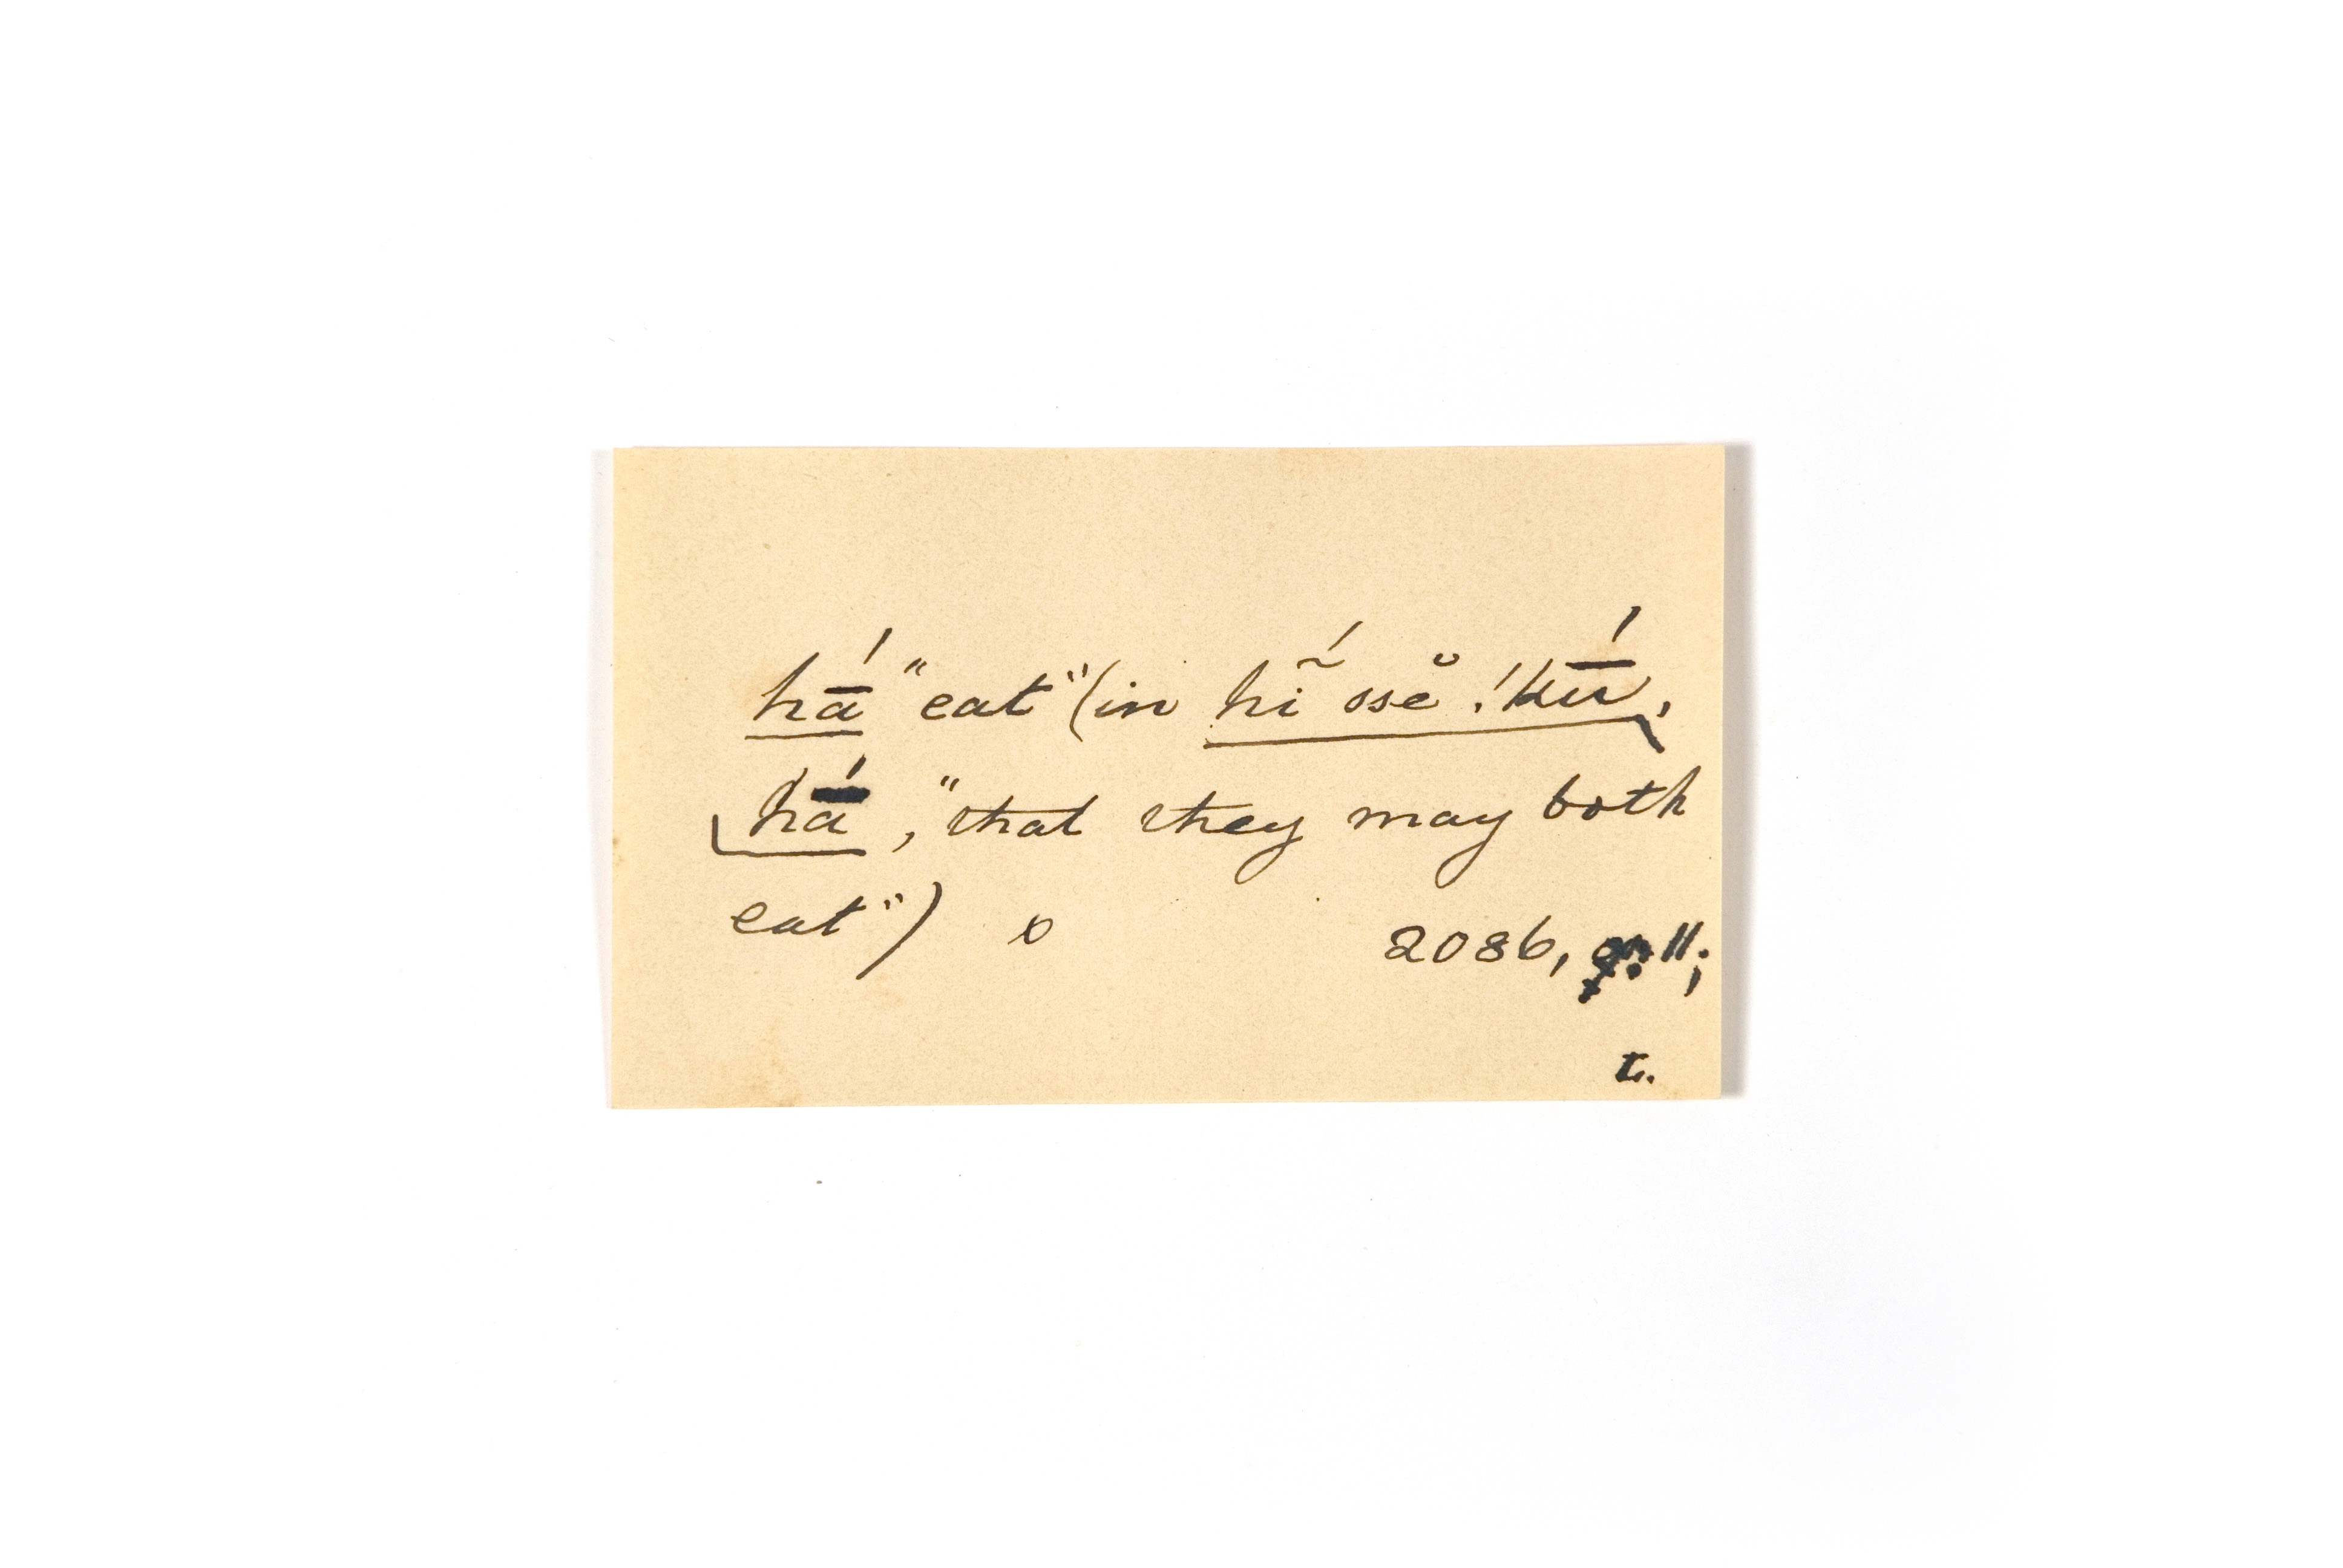 hā́ "eat" (in hĩ́ ssĕ !kū́,
hā́, "that they may both
eat") o 2086, 11;
t.